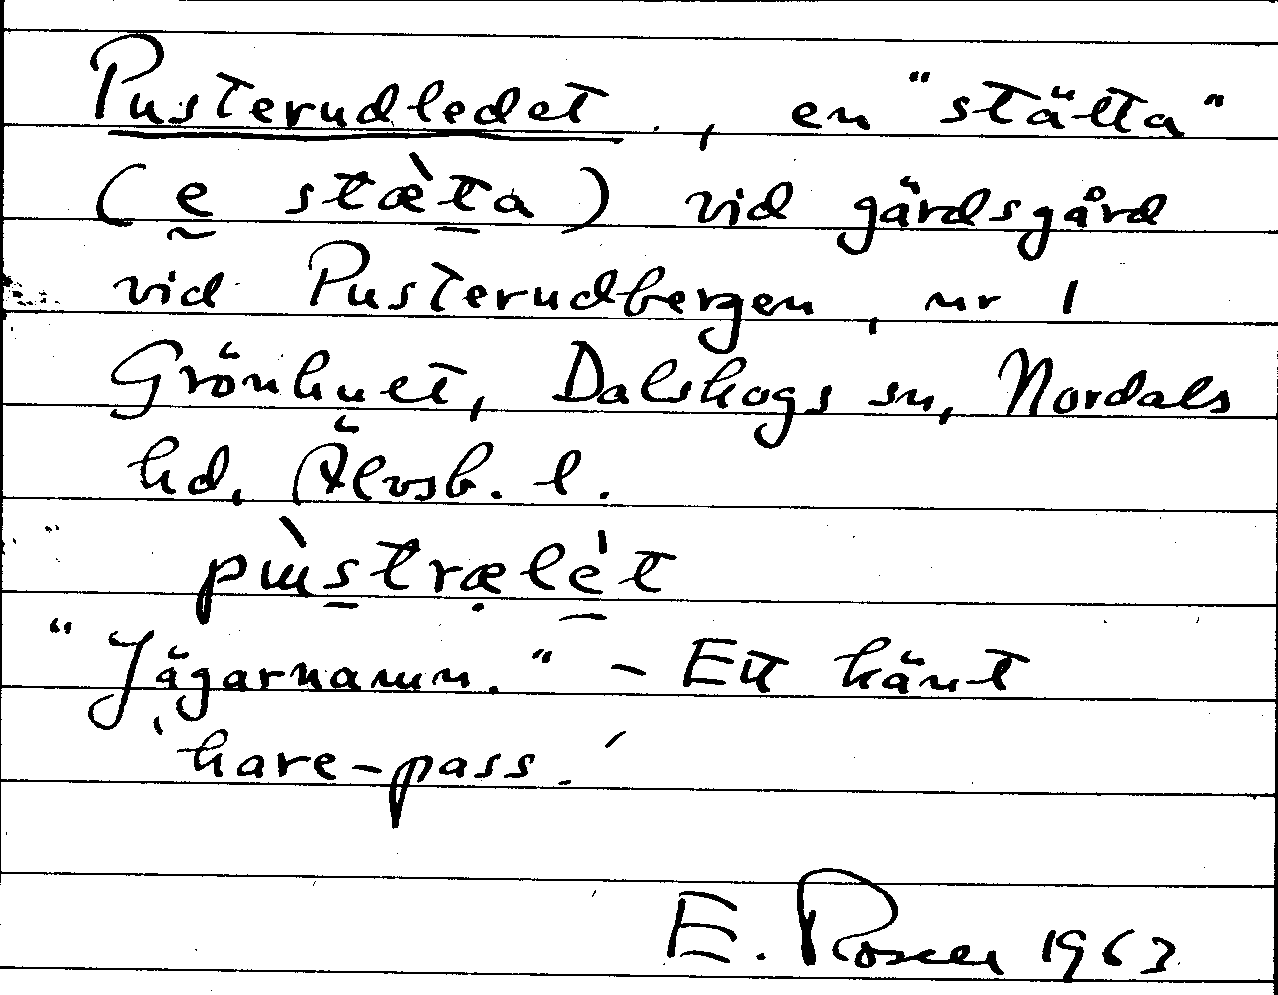 Pusterudledet, en "stätta"
(e stæ̀ta) vid gärdsgård
vid Pusterudbergen, nr 1
Grönhuet, Dalskogs sn, Nordals
hd, Älvsb. l.
pɯ̀strælèt
"Jägarnamn." - Ett känt
'hare-pass.'
E. Rosen 1963